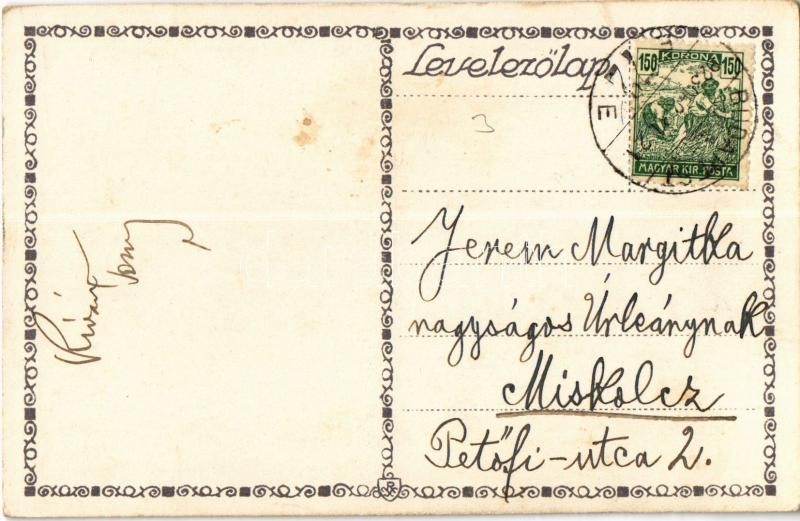 Levelezőlap
150 KORONA 150
MAGYAR KIR. POSTA
BUDAPEST
3
Jerem Margitka
nagyságos Úrleánynak
Miskolcz
Petőfi-utca 2.